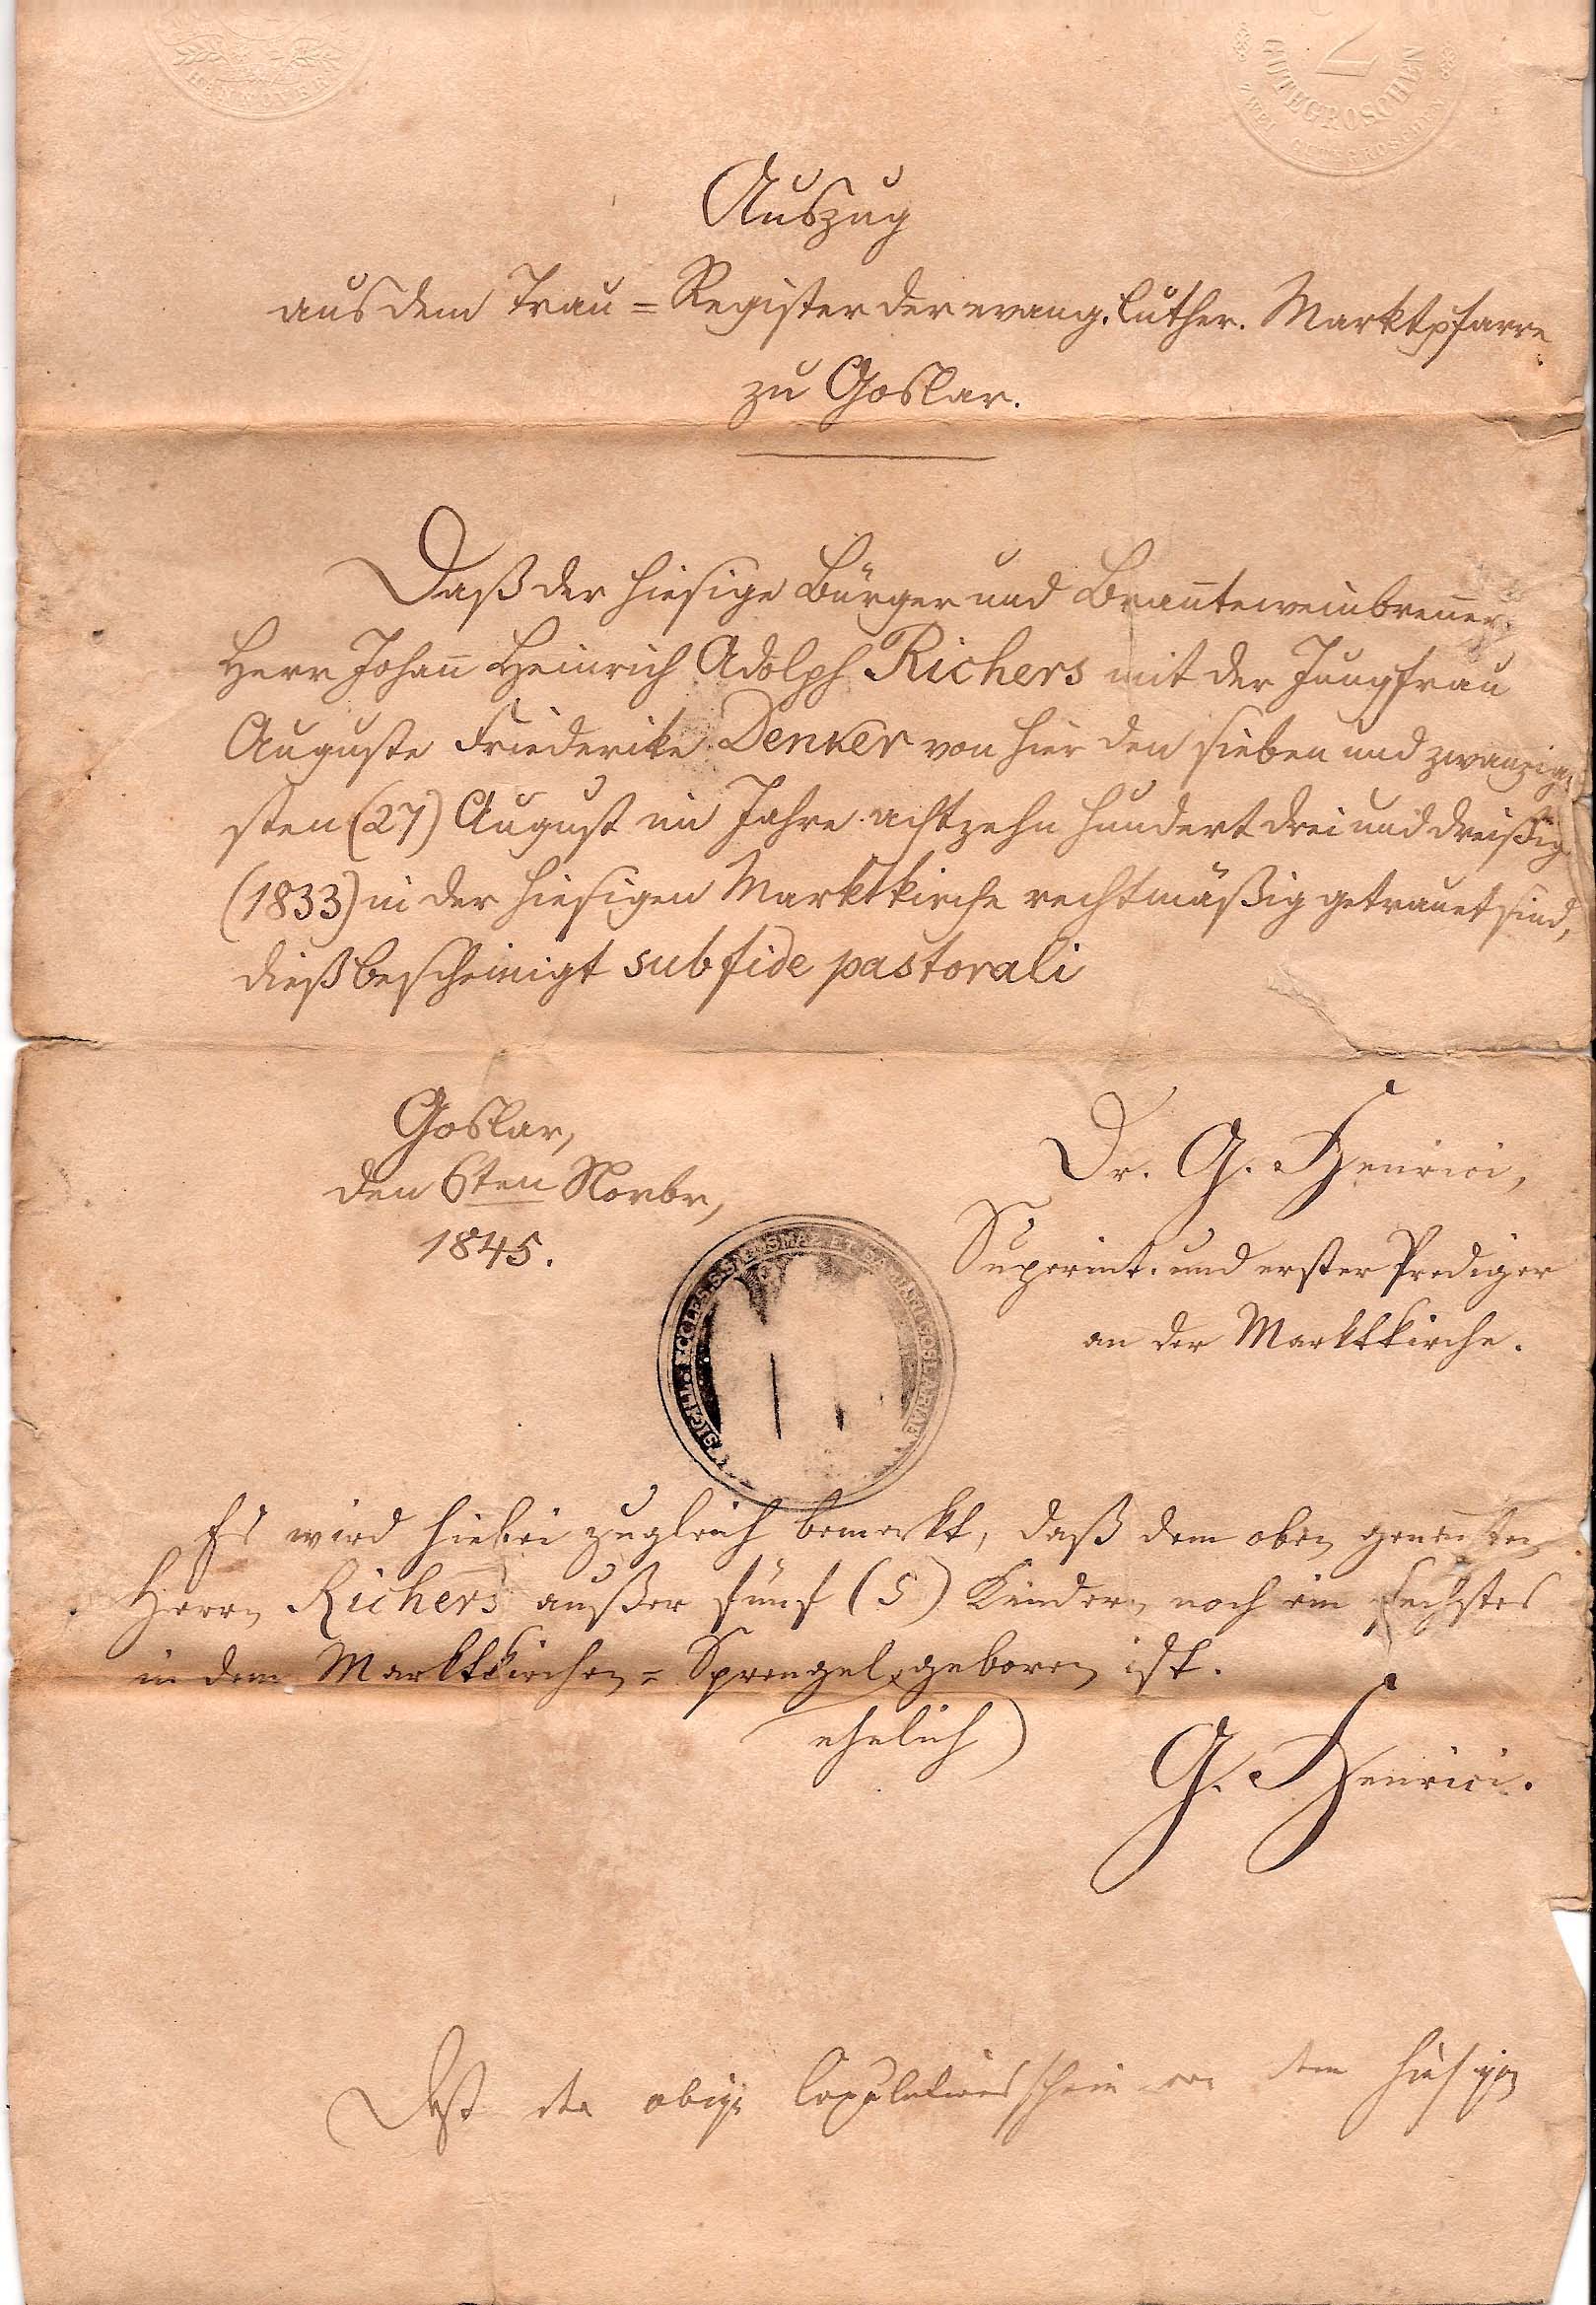 HANNOVER
2
GUTEGROSCHEN
ZWEI GUTEGROSCHEN
Auszug
aus dem Trau=Register der evang. luther. Marktpfarre
zu Goslar.
Daß der hiesige Bürger und Bran̅teweinbren̅er,
Herr Johan̅ Heinrich Adolph Richers mit der Jungfrau
Auguste Friederike Denker von hier den sieben und zwanzig
sten (27) August im Jahre achtzehn hundert drei und dreißig
(1833) in der hiesigen Marktkirche rechtmäßig getrauet sind,
dieß bescheinigt sub fide pastorali
Goslar,
den 6ten Novbr,
1845.
Dr. G. Henrici,
Superint. und erster Prediger
an der Marktkirche.
SIGILL. ECCLES. GOSLARIAE
Es wird hiebei zugleich bemerkt, daß dem oben genan̅ten
Herrn Richers außer fünf (5) Kindern noch ein sechstes
in dem Marktkirchen=Sprengel geboren ist.
ehelich
G. Henrici.
Daß der obige Copulationsschein von dem hiesigen